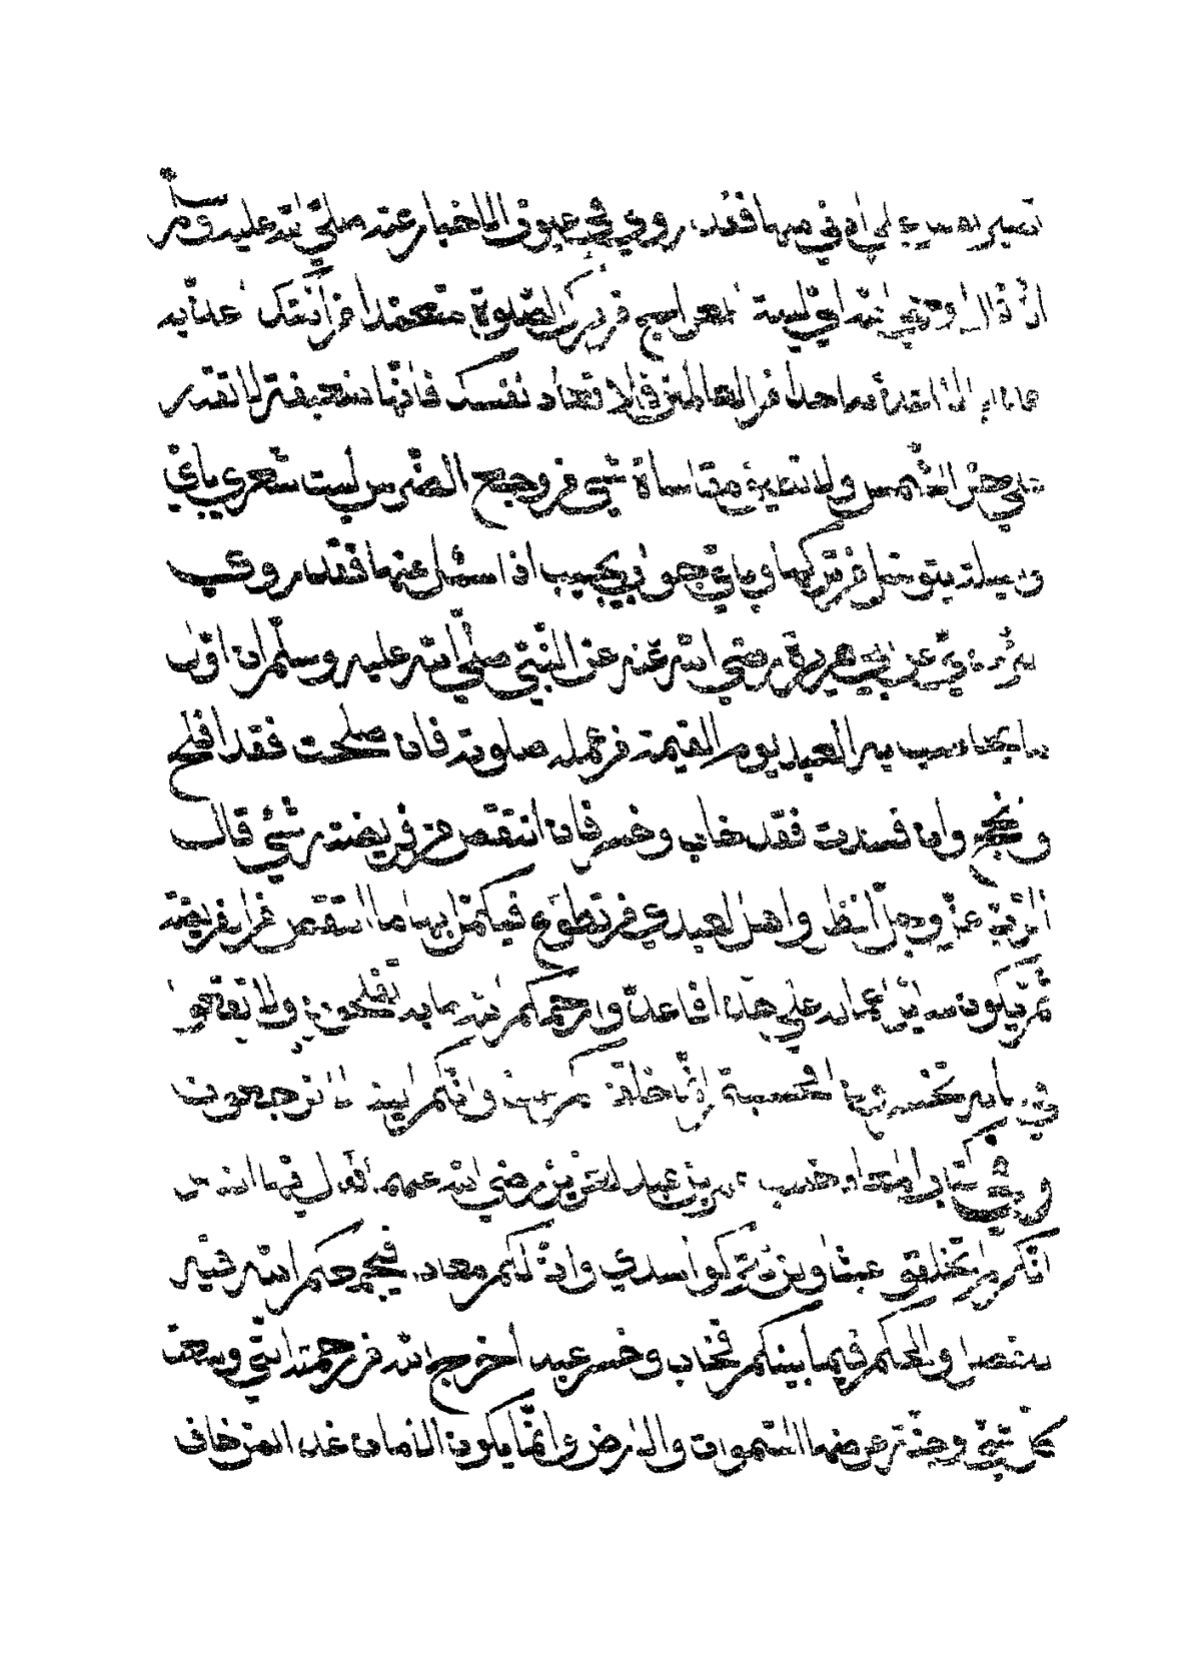 تصبر يوم على اد في منها فقد روي في عيون الاخبار عنه صلى الله عليه وسلم
انه قال اوحى الله الي ليلة المعراج من ترك الصلوة متعمدا فانّك عذابه
احدا من العالمين فالا تعاد نفسك فانها ضعيفة لا تقدر
على حرّ الشمس ولا تطيق مقاساة شيء من وجع الضرس ليت شعري باي
وسيلة يتوسل من تركها وباي جواب يجيب اذا سئل عنها فقد روي
عن ابي هريرة رضي الله عنه عن النبي صلى الله عليه وسلم ان اول
ما يحاسب به العبد يوم القيمة من عمله صلوته فان صلحت فقد افلح
ونجح وان فسدت فقد خاب وخسر فان انتقص من فريضته شيئ قال
الرب عزّ وجلّ انظروا هل لعبدي من تطوع فيكمّل بها ما انتقص من الفريضة
ثمّ يكون سائر اعماله على هذا افاعدّوا رحمكم الله ما به تفلحون ولا تقعوا
فيما به تخسرون افحسبتم انّما خلقناكم عبثا وانّكم الينا لا ترجعون
وفي كتاب خطب عمر بن عبد العزيز رضي الله عنه اقول ايها الناس
انّكم لم تخلقوا عبثا ولن تتركوا سدي وانّ لكم معاد فيجمعكم الله فيه
للفصل والحكم فيما بينكم فخاب وخسر عبد اخرج الله من رحمته التي وسعت
كل شيئ وجنّة عرضها السّموات والارض وانّما يكون الامان غدا لمن خاف